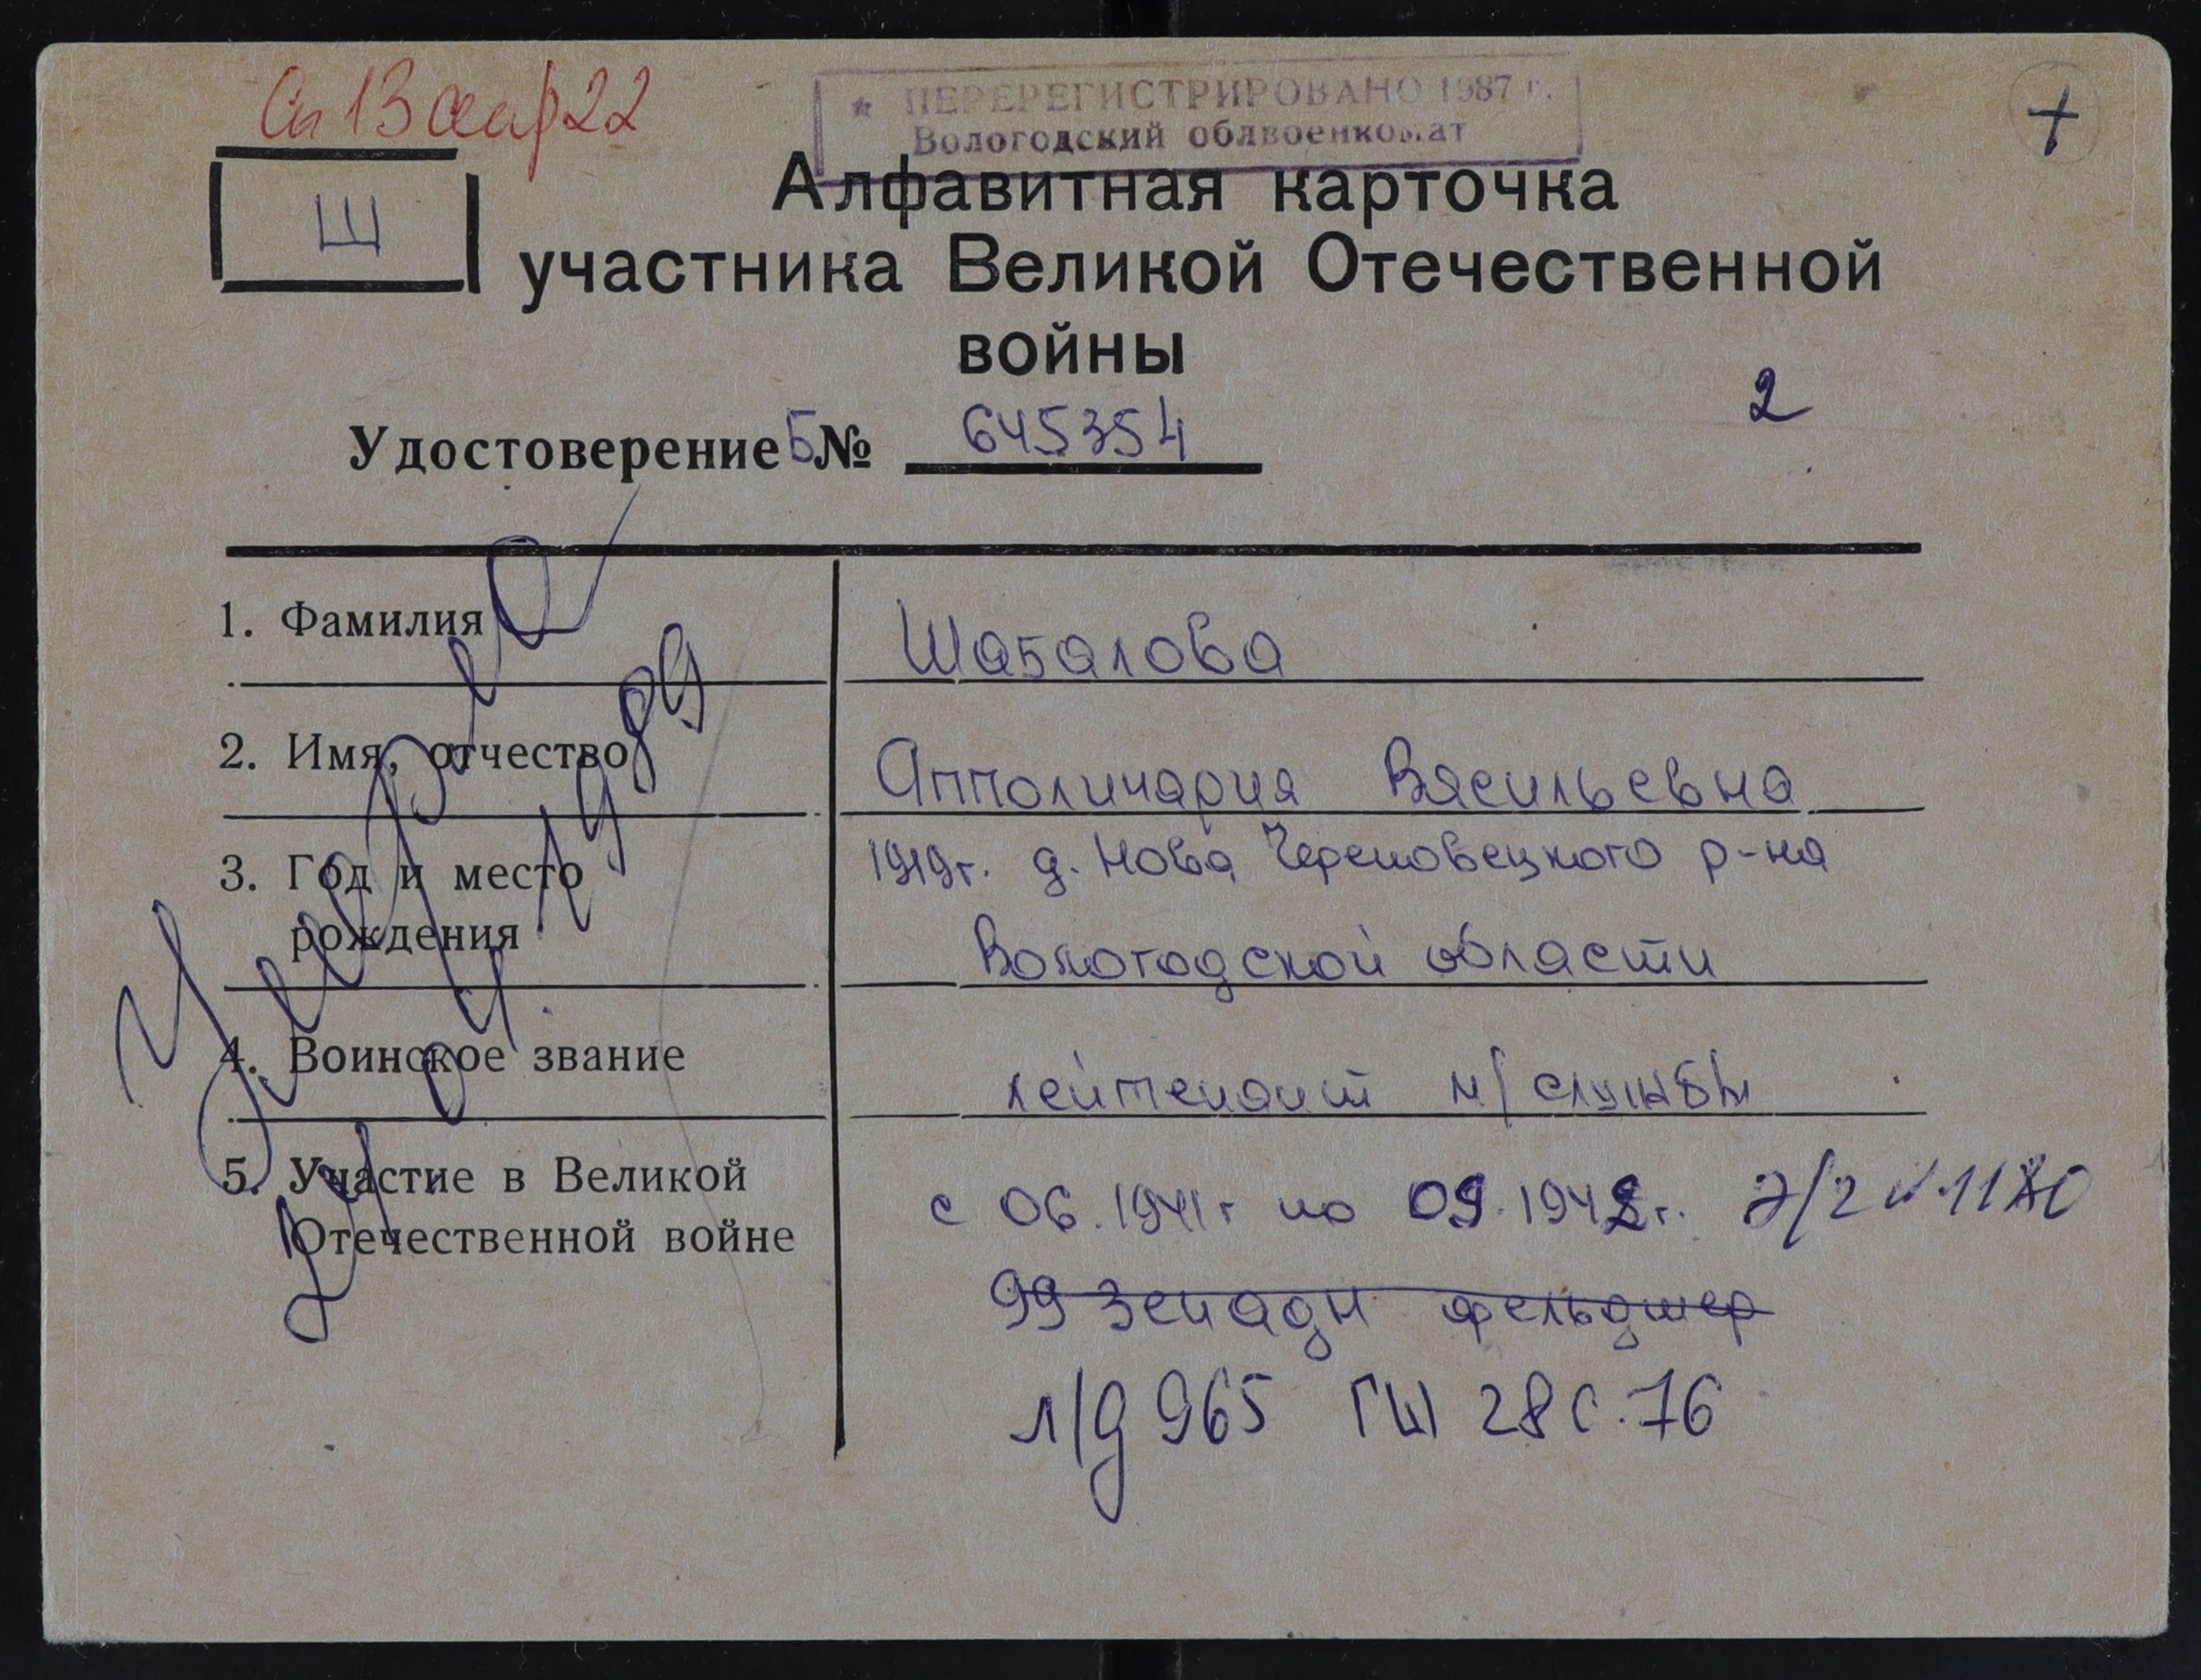 ★ ПЕРЕРЕГИСТРИРОВАНО 1987 г.
Вологодский облвоенкомат
+
Ш
Алфавитная карточка
участника Великой Отечественной
войны
2
Удостоверение Б № 645354
1. Фамилия Шабалова
2. Имя, отчество Апполинария Васильевна
3. Год и место рождения 1919г. д. Нова Череповецкого р-на
Вологодской области
4. Воинское звание лейтенант м/службы
5. Участие в Великой Отечественной войне с 06.1941г по 09.1942г. Э/2 №
99 зенадн фельдшер
л/д 965 ГШ 28 с.76
Умерла
24.04.1989